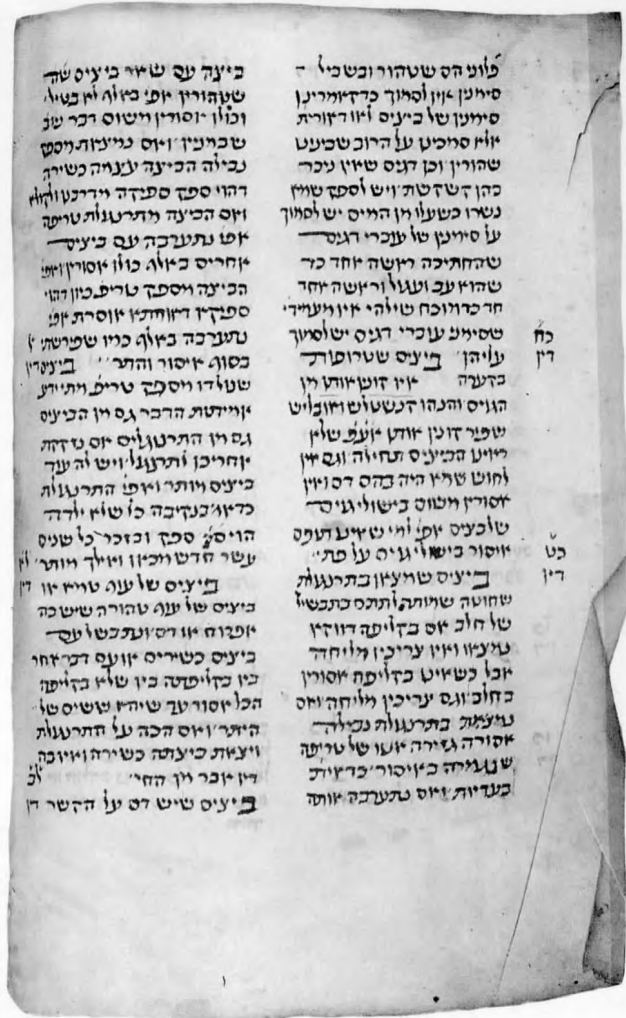 פלוני הם שטהור ובשביל
סימנין אין לסמוך כדאמרינן
סימנין של ביצים לאו דאורית
אלא סמכינן על הרוב שבימינו
טהורין וכן דגים שאין ניכר
בהן קשקשת ויש לספק שמא
נשרו כשעלו מן המים יש לסמוך
על סימנין של עוברי דגים
שהחתיכה ראשה אחד כד
שהוא עב ועגול וראשה אחד
חד כדמוכח שילהי אין מעמידי
שסימני עוברי דגים יש לסמוך
כח
דין
עליהן ביצים שטרופות
בקערה אין לוקחין אותן מן
הגוים והנהו
שפיר לוקחין אותן אעפ שלא
ראינו הביצים תחילה וגם אין
לחוש שמא היה בהם דם ואין
אסורין משום בישולי גוים
שלביצים אפי למי שאינו תופס
כט
דין
איסור בישולי גוים על פת
ביצים שמצאן בתרנגולת
שחוטה שמותר לתתם בתבשיל
של חלב אם בקליפה דווקא
נמצאו ואין צריכין מליחה
אבל כשאינן בקליפה אסורין
בחלב וגם צריכין מליחה ואם
נמצאת בתרנגולת נבילה
אסורה גזירה אטו של טריפה
שנגמרה באיסור כדאית
בעדיות ואם נתערבה אותה
ביצה עם שאר ביצים
שטהורין אפי באלף לא בטיל
וכולן אסורין משום דבר שב
שבמנין ואם נמצאת מספק
נבילה הביצה עצמה כשירה
דהוי ספק ספיקה מדרבנן
ואם הביצה מתרנגולת טריפה
אפי נתערבה עם ביצים
אחרים באלף כולן אסורין ואפי
הביצה מספק טריפ כיון דהוי
ספיקא דאורייתא אוסרת אפי
נתערבה באלף כמו שפירשתי
ל
דין
בסוף איסור והתר ביצים
שנולדו מספק טריפ מתי ידע
אמיתת הדבר גם מן הביצים
גם מן התרנגולים אם נזקקת
אחריכן לתרנגול ויש לה עוד
ביצים מותר ואפי התרנגולת
כדאמ בנקיבה כל שלא ילדה
הוי ספק ובזכר כל שנים
עשר חדש מכאן ואילך מותר
לא
דין
ביצים של עוף טמא או
ביצים של עוף טהורה שיש בה
אפרוח או דם ונתבשל עם
ביצים כשירים או עם דבר אחר
בין בקליפתה בין שלא בקליפה
הכל אסור עד שיהא ששים של
היתר ואם הכה על התרנגולת
ויצאת ביצתה כשירה ואין בה
דין אבר מן החי
לב
דין
ביצים שיש דם על הקשר